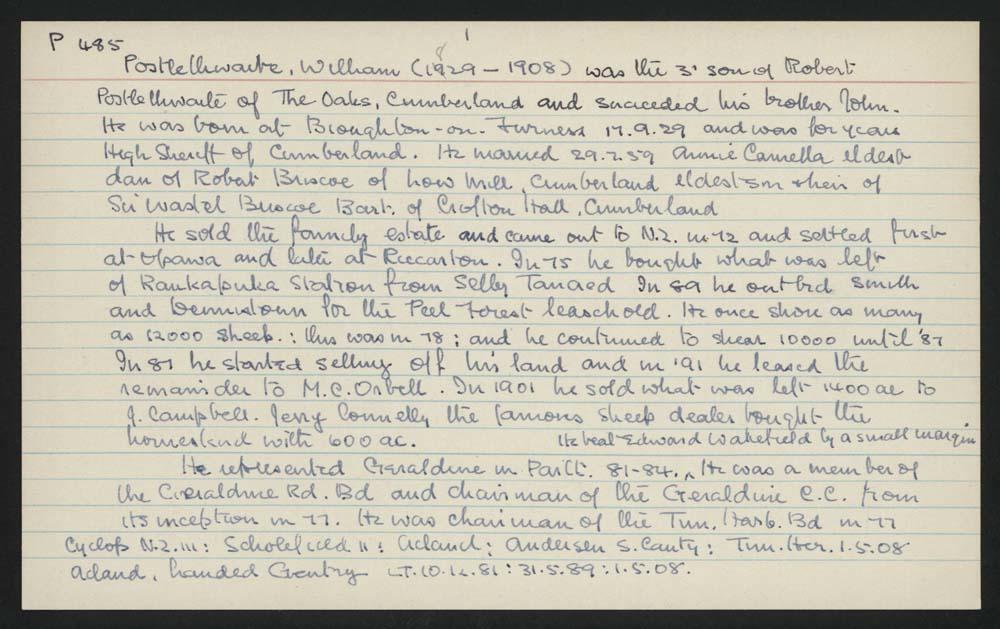 P 485
1
Postlethwaite, William (1829 – 1908) was the 3' son of Robert
Postlethwaite of The Oaks, Cumberland and succeeded his brother John.
He was born at Broughton-on-Furness 17.9.29 and was for years
High Sheriff of Cumberland. He married 29.7.59 Annie Camella eldest
dau of Robert Briscoe of Low Mill, Cumberland eldest son & heir of
Sir Wastel Briscoe Bart. of Crofton Hall, Cumberland
He sold the family estate and came out to N.Z. in 72 and settled first
at Opawa and later at Riccarton. In 75 he bought what was left
of Raukapuka Station from Selby Tancred In 89 he outbid Smith
and Dennistoun for the Peel Forest leasehold. He once shore as many
as 12000 sheep.: this was in 78; and he continued to shear 10000 until '87
In 87 he started selling off his land and in '91 he leased the
remainder to M.C. Orbell. In 1901 he sold what was left 1400 ac to
J. Campbell. Jerry Connelly the famous sheep dealer bought the
homestead with 600 ac.
He beat Edward Wakefield by a small margin
He represented Geraldine in Parlt. 81-84. ^ He was a member of
the Geraldine Rd. Bd and chairman of the Geraldine C.C. from
its inception in 77. He was chairman of the Tim. Harb. Bd in 77
Cyclop N.Z. III: Scholefield II: Acland; Andersen S. Canty: Tim. Her. 1.5.08
Acland, Landed Gentry LT. 10.12.81: 31.5.89: 1.5.08.